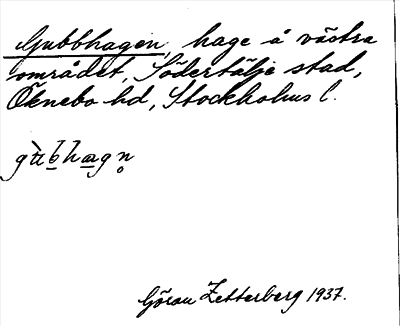 Gubbhagen, hage å västra
området, Södertälje stad,
Öknebo hd, Stockholms l.
gùb̲hæ̲gn̥
Göran Zetterberg 1937.